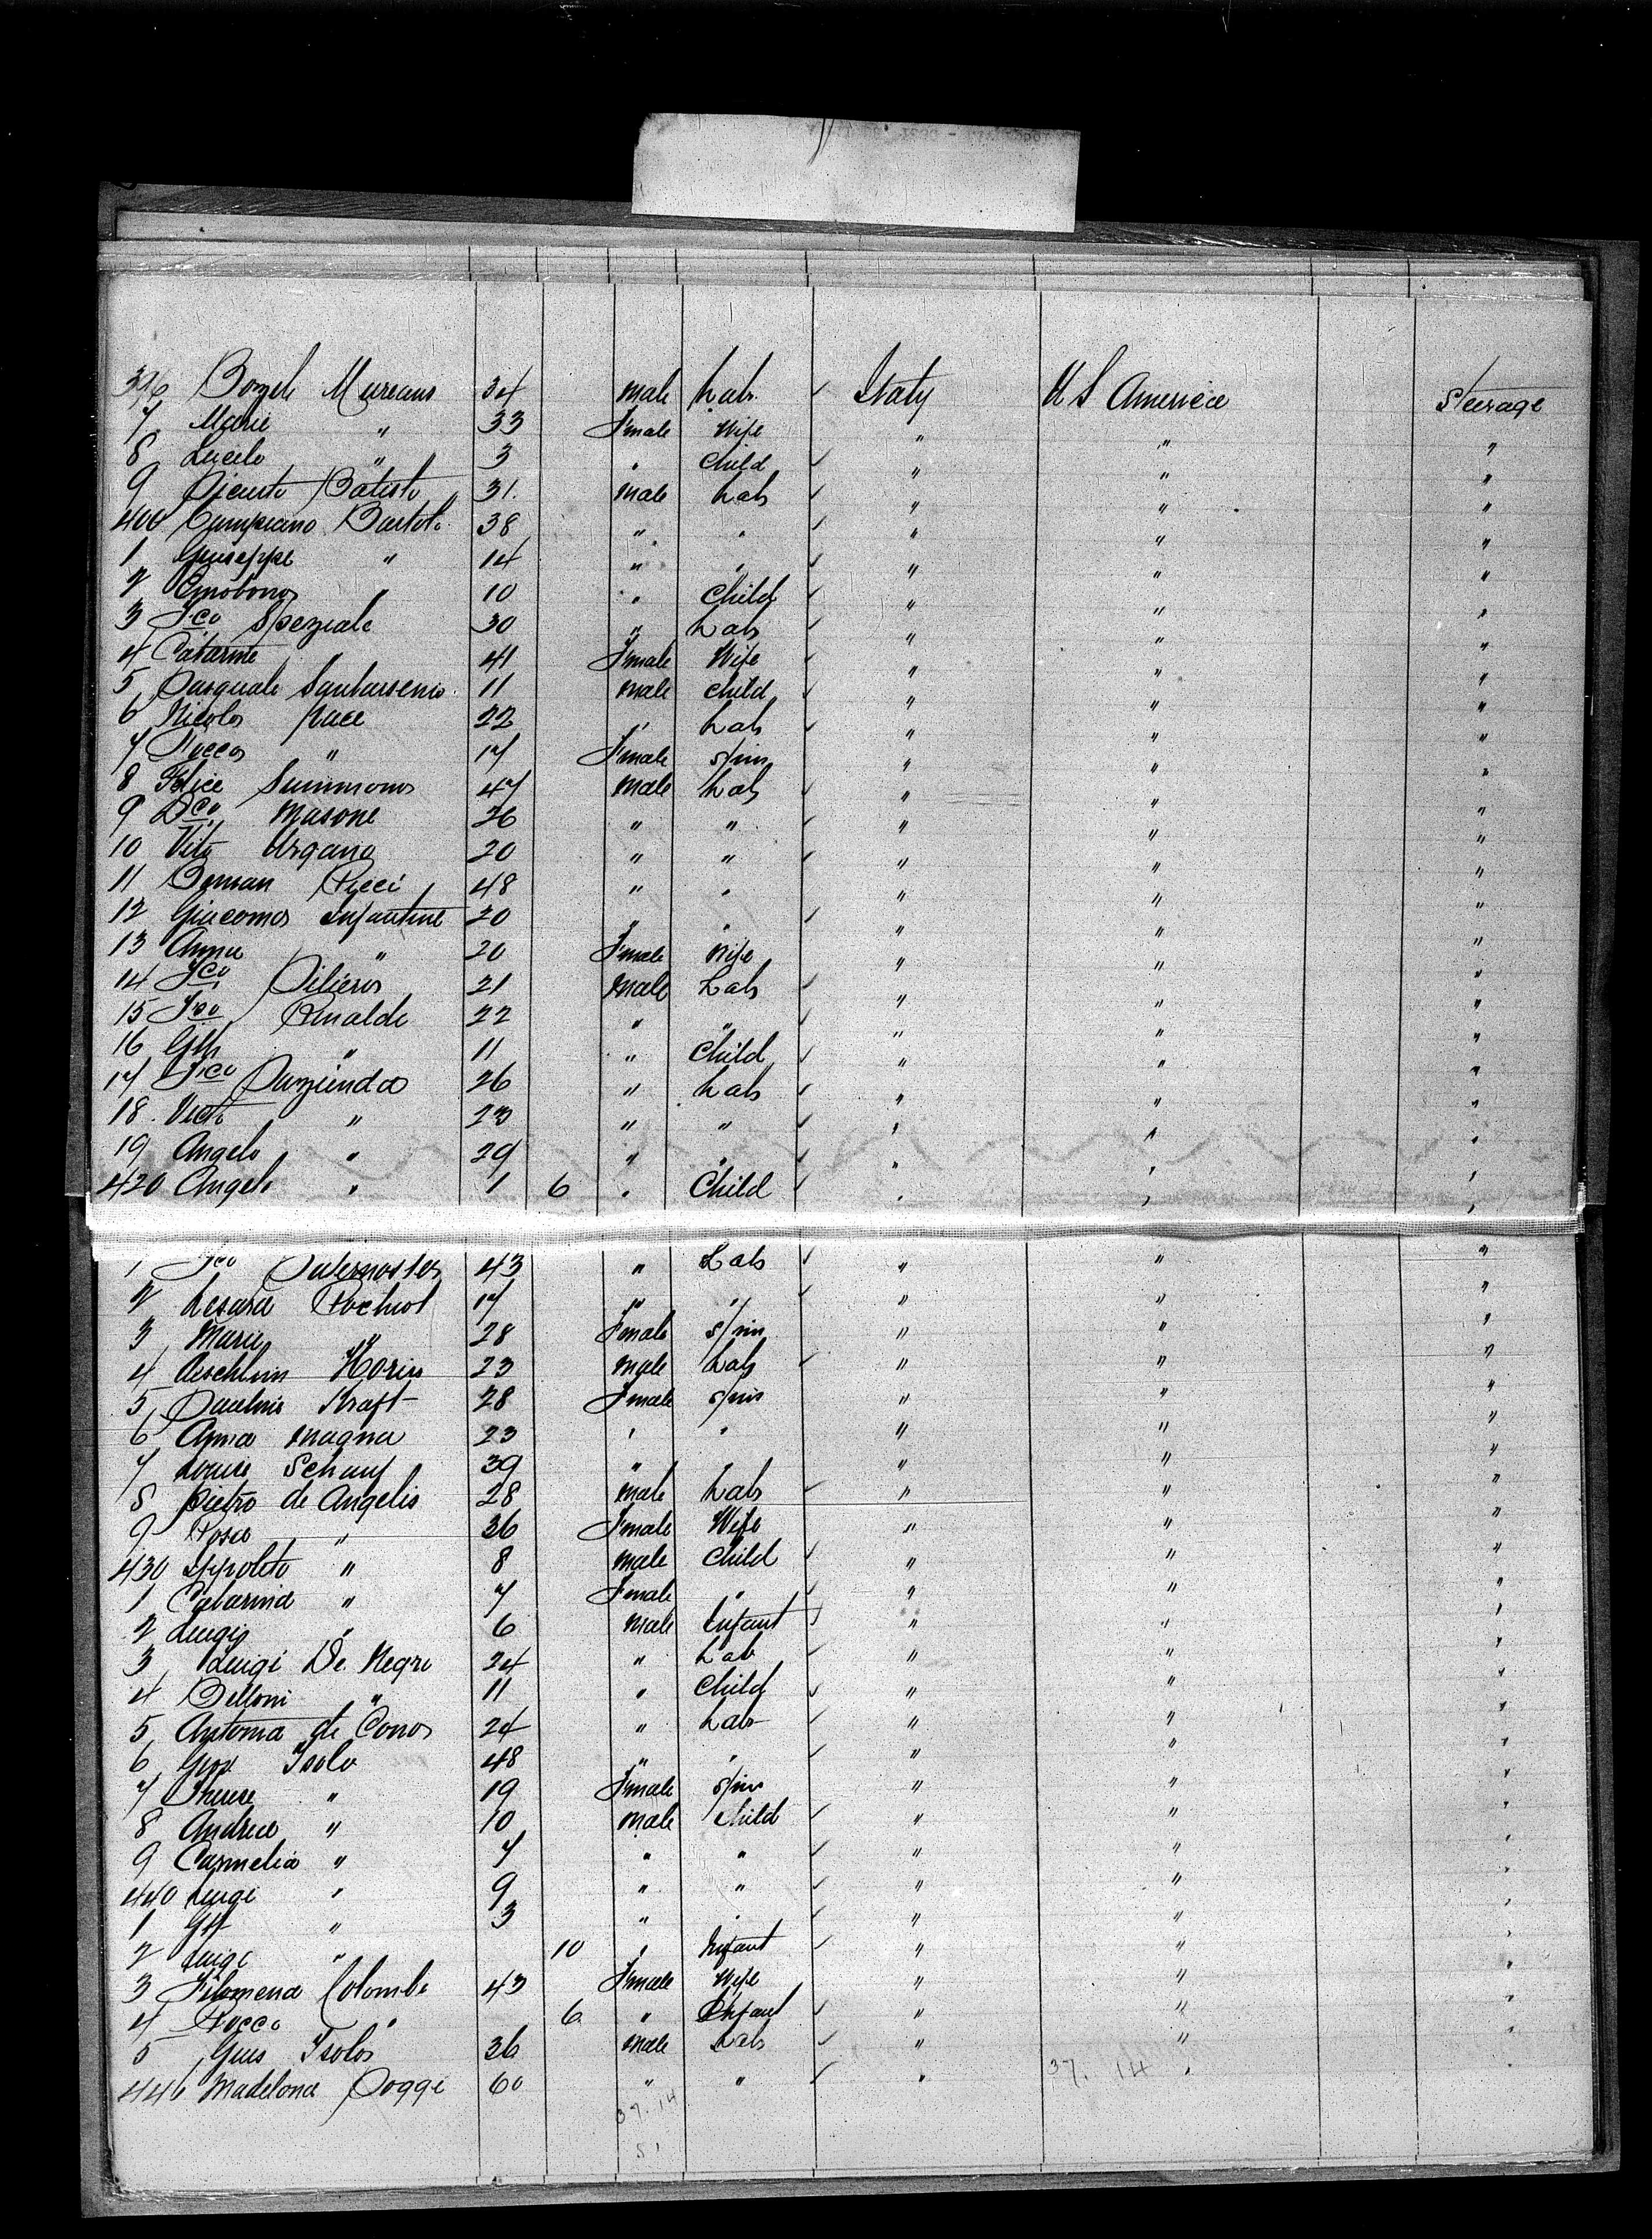 396 Bozzele Mureano 34 male Lab. ✓ Italy U S America Steerage
7 Marie " 33 Female Wife " " "
8 Lucele " 3 " Child ✓ " " "
9 Batisto 31. male Lab ✓ " " "
400 Campiano Bartolo 38 " " ✓ " " "
1 Giuseppe " 14 " " ✓ " " "
2 " 10 " Child ✓ " " "
3 Fco Speziale 30 " Lab ✓ " " "
4 Catarine " 41 Female Wife ✓ " " "
5 Pasquale Santarsenio 11 male child ✓ " " "
6 Nicolo Pace 22 " Lab ✓ " " "
7 Rocco " 17 Female spin " " "
8 Felice Summono 47 male Lab ✓ " " "
9 Dco Masone 26 " " ✓ " " "
10 Vito Urgano 20 " " ✓ " " "
11 Pucci 48 " " " " "
12 Giacomo Infantine 20 " " ✓ " " "
13 Anna " 20 Female Wife " " "
14 Fco Pilieris 21 male Lab ✓ " " "
15 Fco Rinalde 22 " " ✓ " " "
16 " 11 " Child ✓ " " "
17 Fco 26 " Lab ✓ " " "
18. Victo " 23 " " ✓ " " "
19 Angelo " 29 " " ✓ " " "
420 Angelo " 1 6 " Child ✓ " " "
1 Fco Paternoster 43 " Lab ✓ " " "
2 Cesare Rochiol 17 " " ✓ " " "
3 Marie " 28 Female spin " " "
4 Aeschlim 23 male Lab ✓ " " "
5 Pauline Kraft 28 Female spin " " "
6 Anna Magna 23 " " " " "
7 Louise Schauf 39 " " " " "
8 Pietro de Angelis 28 male Lab ✓ " " "
9 Rosa " 36 Female Wife " " "
430 Ippolito " 8 male Child ✓ " " "
1 Catarina " 7 Female " ✓ " " "
2 Luigi " 6 male Infant ✓ " " "
3 Luigi De Negri 24 " Lab ✓ " " "
4 Belloni " 11 " Child ✓ " " "
5 Antonia de Cono 24 " Lab ✓ " " "
6 Giov Isolo 48 " " ✓ " " "
7 Therese " 19 Female spin " " "
8 Andrea " 10 male child ✓ " " "
9 Carmelia " 7 " " ✓ " " "
440 Luigi " 9 " " ✓ " " "
1 " 3 " " ✓ " " "
2 Luigi " 10 " Infant ✓ " " "
3 Filomena Colombo 43 Female Wife " " "
4 Rocco " 6 " Infant ✓ " " "
5 Gius Isolo 36 male Lab ✓ " " "
446 Madelona Poggi 60 " " ✓ " 37. 14 " "
37. 14
51